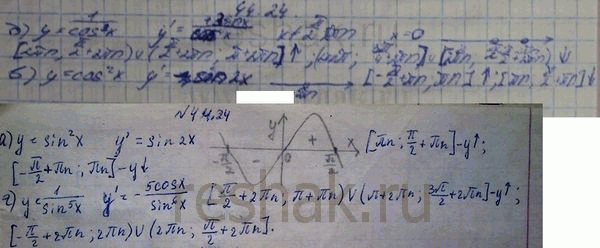 44.24
y = 1/cos⁴x y' = x ≠ π/2 + πn x=0
[2πn; π/2+2πn) ∪ (π/2+2πn; π+2πn]↑;
б) y = cos²x y' = -sin 2x [-π/2+πn; πn]↑; [πn; π/2+πn]↓
№44.24
а) y = sin²x y' = sin 2x y - + x -π/2 0 π/2 [πn; π/2+πn] - y↑;
[-π/2+πn; πn] - y↓
г) y = 1/sin⁵x y' = -5cosx/sin⁶x [π/2+2πn, π+πn) ∪ (π+2πn; 3π/2+2πn] - y↑;
[-π/2+2πn; 2πn) ∪ (2πn; π/2+2πn].
reshak.ru